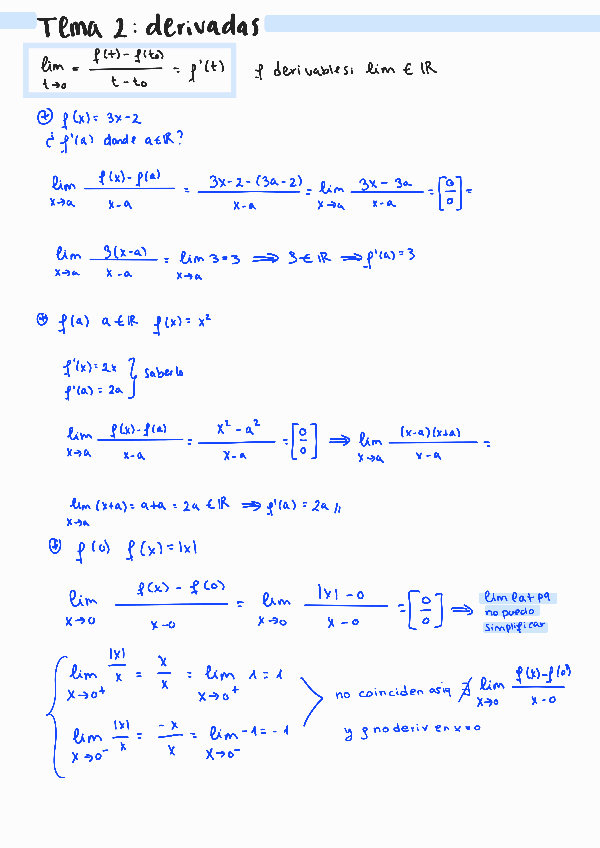 Tema 2: derivadas
lim t→0 = f(t) - f(t0) / t - t0 = f'(t)   f derivable si lim ∈ ℝ
f(x) = 3x - 2
¿ f'(a) donde a ∈ ℝ?
lim x→a f(x) - f(a) / x - a = 3x - 2 - (3a - 2) / x - a = lim x→a 3x - 3a / x - a = [0/0] =
lim x→a 3(x-a) / x - a = lim x→a 3 = 3 ⟹ 3 ∈ ℝ ⟹ f'(a) = 3
f(a) a ∈ ℝ f(x) = x²
f'(x) = 2x
f'(a) = 2a } saberlo
lim x→a f(x) - f(a) / x - a = x² - a² / x - a = [0/0] ⟹ lim x→a (x-a)(x+a) / x - a =
lim x→a (x+a) = a + a = 2a ∈ ℝ ⟹ f'(a) = 2a //
f'(0) f(x) = |x|
lim x→0 f(x) - f(0) / x - 0 = lim x→0 |x| - 0 / x - 0 = [0/0] ⟹ lim lat pq
no puedo
simplificar
lim x→0⁺ |x| / x = x / x = lim x→0⁺ 1 = 1
no coinciden asiq ∄ lim x→0 f(x) - f(0) / x - 0
lim x→0⁻ |x| / x = -x / x = lim x→0⁻ -1 = -1
y f no deriv en x = 0